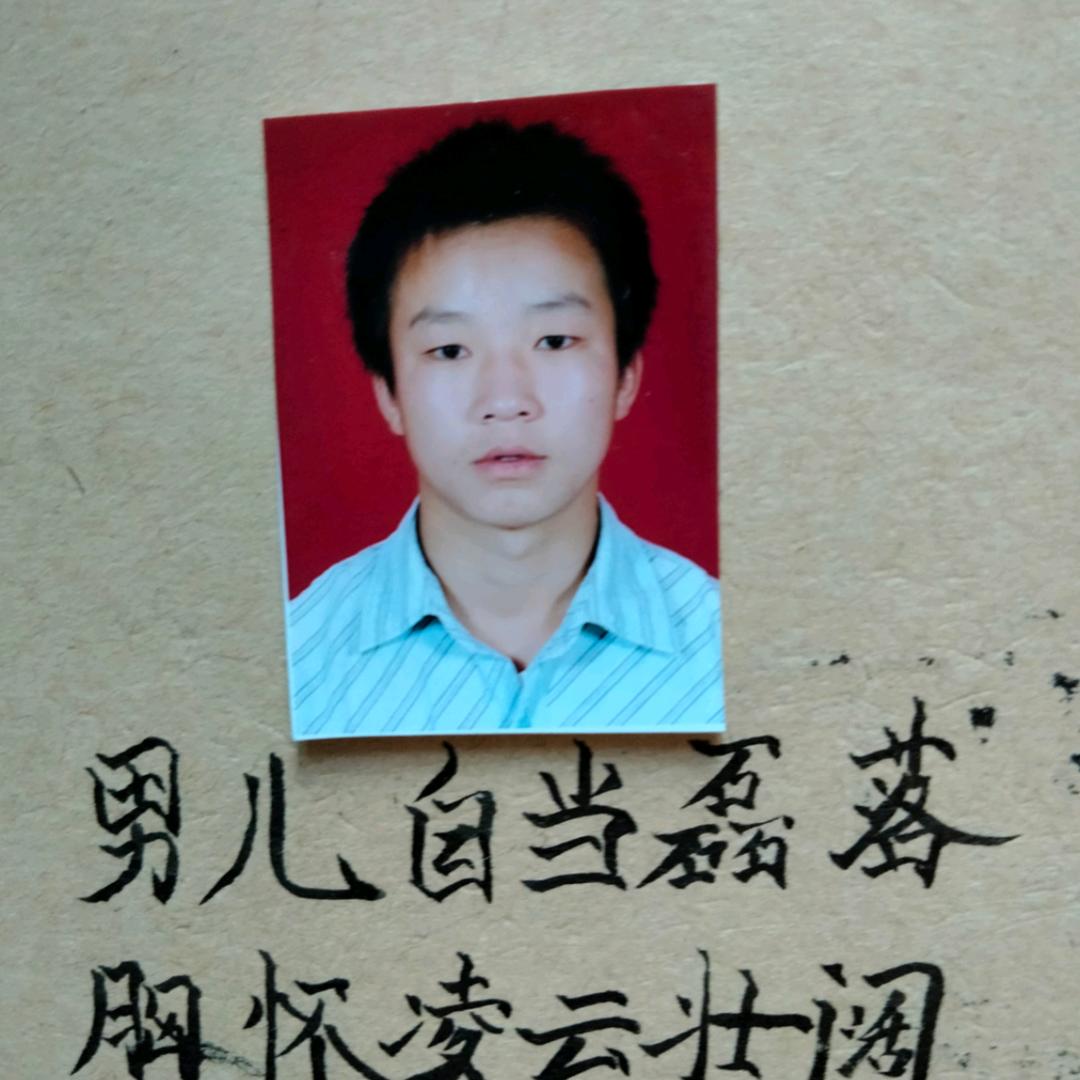 男儿自当磊落
胸怀凌云壮阔